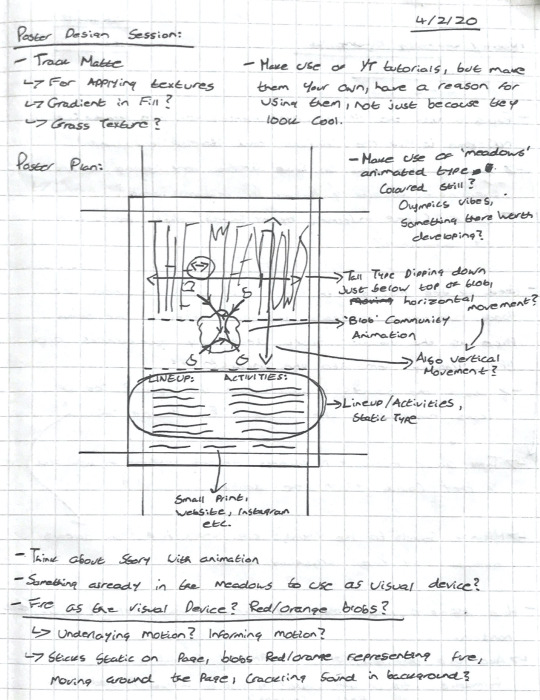 4/2/20
Poster Design Session:
- Track Matte
↳ For Applying textures
↳ Gradient in Fill?
↳ Grass Texture?
- Make use of YT tutorials, but make
them your own, have a reason for
using them, not just because they
look cool.
Poster Plan:
- Make use of 'meadows'
animated type
Coloured still?
Olympics vibes,
Something there worth
developing?
THE MEADOWS
→ Tall Type Dipping down
just below top of blob,
horizontal
movement?
→ 'Blob' Community
Animation
→ Also vertical
Movement?
LINEUP: ACTIVITIES:
→ Lineup/Activities,
Static Type
Small Print,
website, instagram
etc.
- Think about Story with animation
- Something already in the meadows to use as visual device?
- Fire as the visual Device? Red/orange blobs?
↳ Underlaying motion? Informing motion?
↳ Sticks Static on Page, blobs Red/orange representing fire,
moving around the Page, Crackling Sound in background?